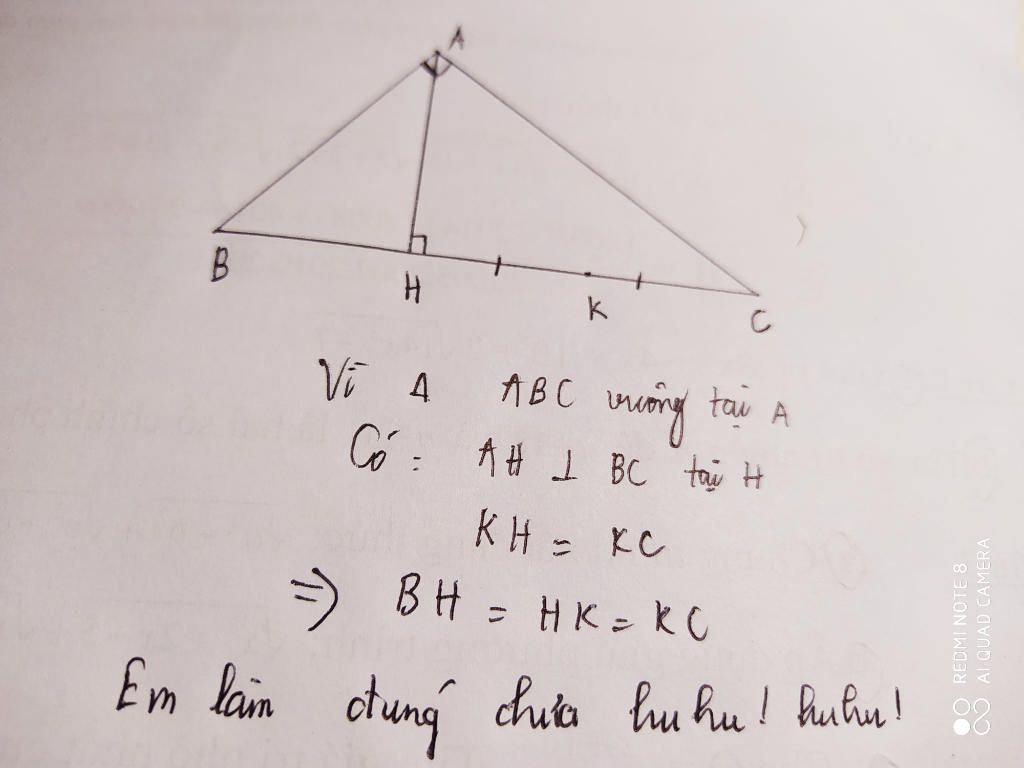 A
B
H
K
C
Vì Δ ABC vuông tại A
Có: AH ⊥ BC tại H
KH = KC
=> BH = HK = KC
Em làm đúng chưa huhu! huhu!
REDMI NOTE 8
AI QUAD CAMERA